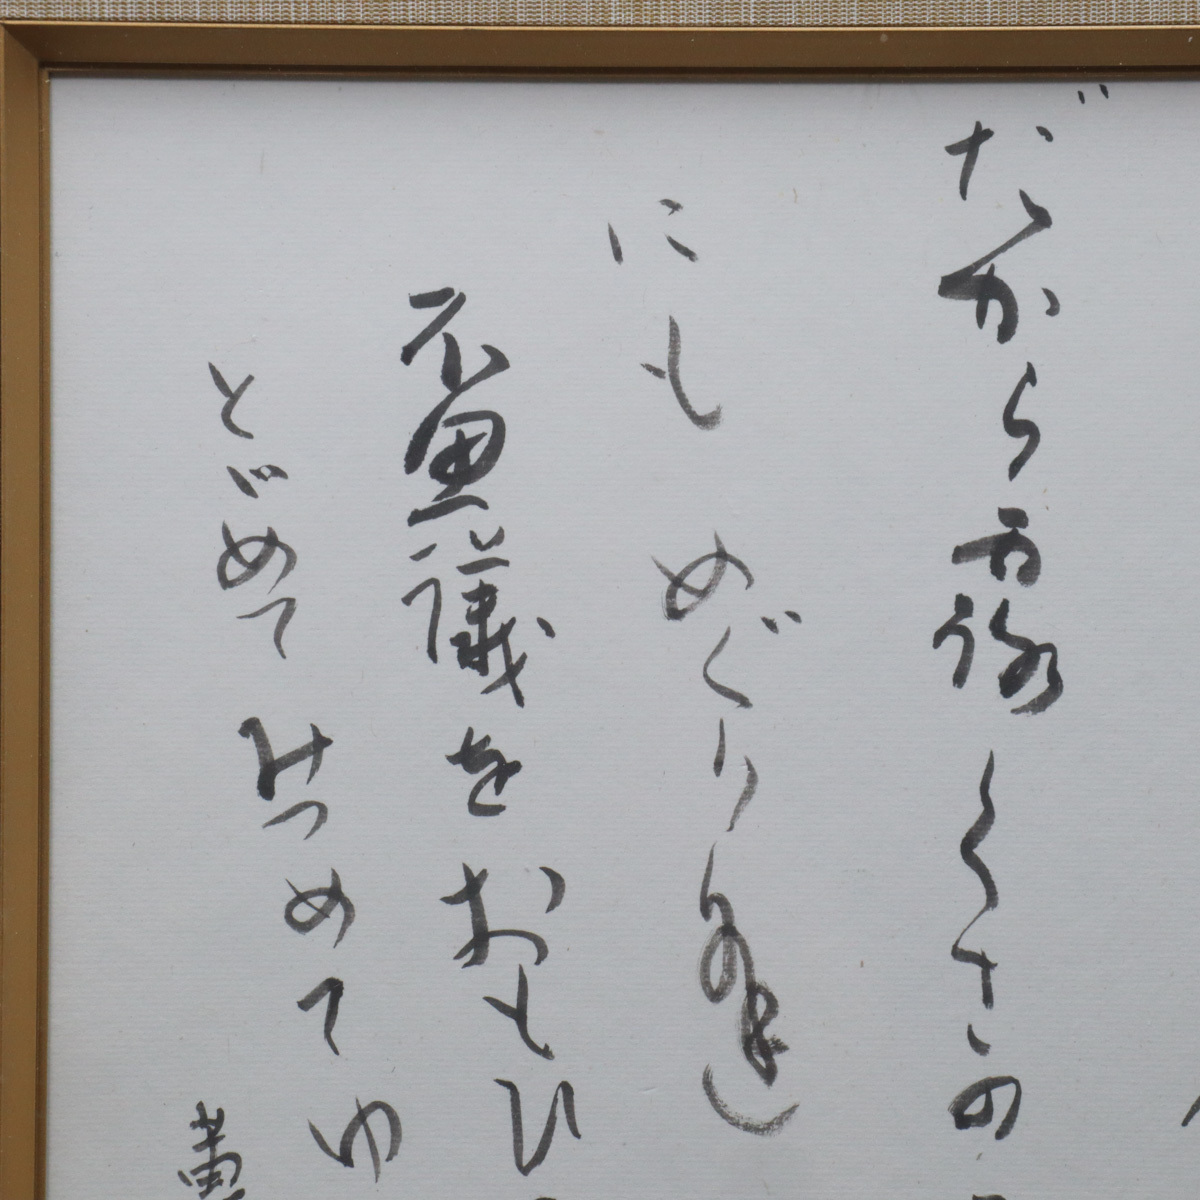 だから露くさの
にもめぐり逢
不思議をおもひ
とゞめてみつめてゆ